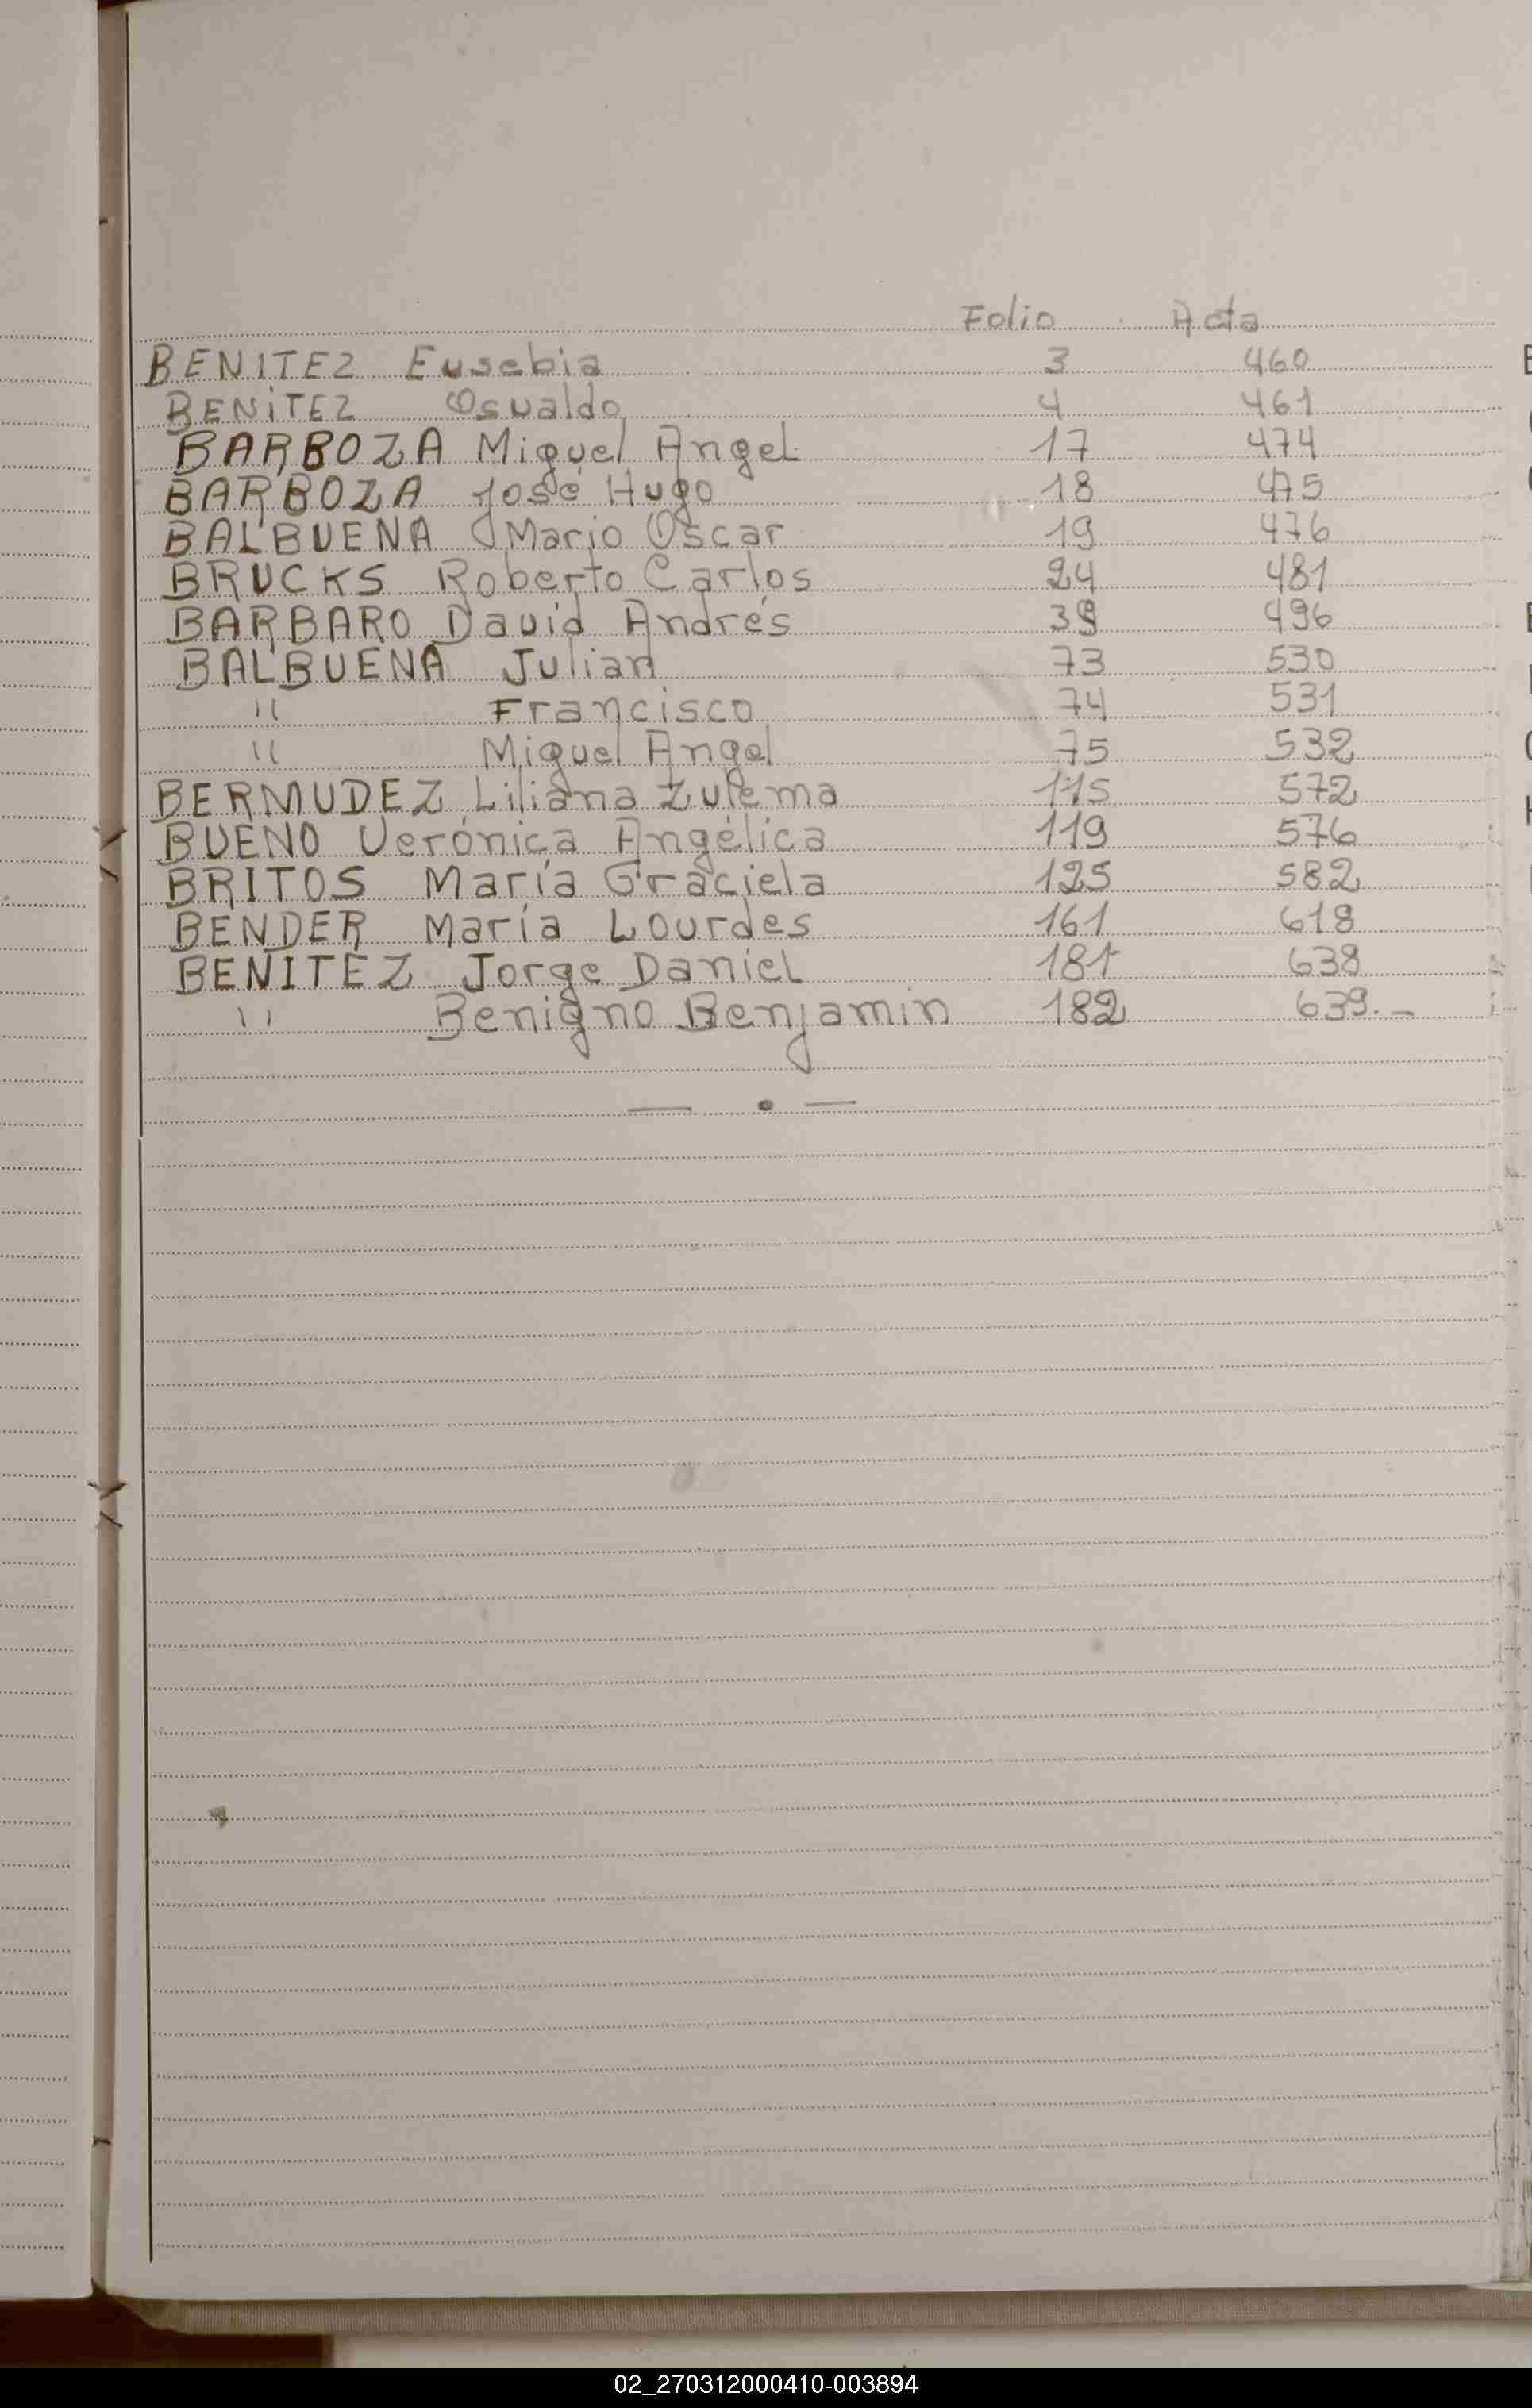 Folio Acta
BENITEZ Eusebia 3 460
BENITEZ Osvaldo 4 461
BARBOZA Miguel Angel 17 474
BARBOZA José Hugo 18 475
BALBUENA Mario Oscar 19 476
BRUCKS Roberto Carlos 24 481
BARBARO David Andrés 39 496
BALBUENA Julian 73 530
" Francisco 74 531
" Miguel Angel 75 532
BERMUDEZ Liliana Zulema 115 572
BUENO Verónica Angélica 119 576
BRITOS María Graciela 125 582
BENDER María Lourdes 161 618
BENITEZ Jorge Daniel 181 638
" Benigno Benjamin 182 639.-
— . —
02_270312000410-003894